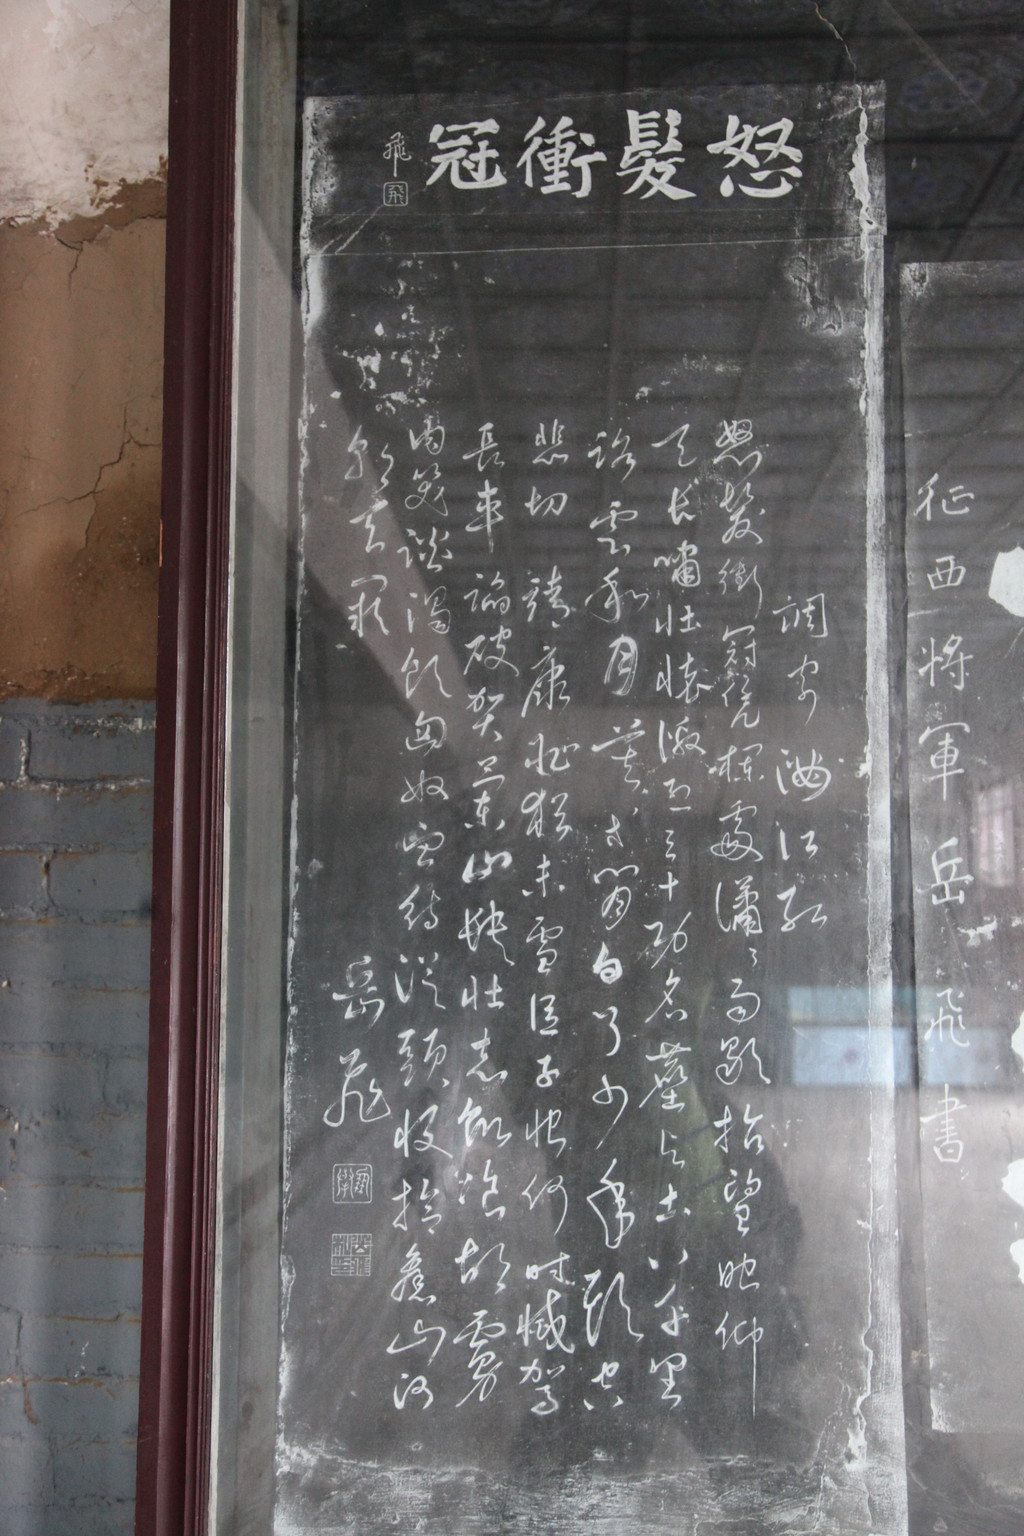 征西將軍岳飛書
怒髮衝冠
飛
飛
調寄滿江紅
怒髮衝冠凭欄處瀟〻雨歇抬望眼仰
天長嘯壯懷激烈三十功名塵与土八千里
路雲和月莫等閒白了少年頭空
悲切靖康恥猶未雪臣子恨何時滅駕
長車踏破賀蘭山缺壯志飢飡胡虜
肉笑談渴飲匈奴血待從頭收拾舊山河
朝天闕
岳飛